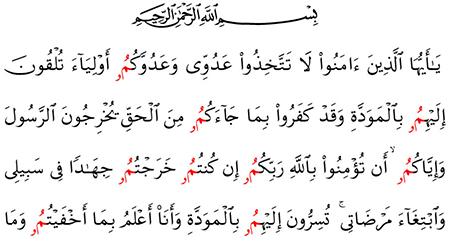 بِسْمِ ٱللَّهِ ٱلرَّحْمَٰنِ ٱلرَّحِيمِ
يَـٰٓأَيُّهَا ٱلَّذِينَ ءَامَنُواْ لَا تَتَّخِذُواْ عَدُوِّى وَعَدُوَّكُمُۥ أَوْلِيَآءَ تُلْقُونَ
إِلَيْهِمُۥ بِٱلْمَوَدَّةِ وَقَدْ كَفَرُواْ بِمَا جَآءَكُمُۥ مِنَ ٱلْحَقِّ يُخْرِجُونَ ٱلرَّسُولَ
وَإِيَّاكُمُۥ ۙ أَن تُؤْمِنُواْ بِٱللَّهِ رَبِّكُمُۥ إِن كُنتُمُۥ خَرَجْتُمُۥ جِهَـٰدًا فِى سَبِيلِى
وَٱبْتِغَآءَ مَرْضَاتِى ۚ تُسِرُّونَ إِلَيْهِمُۥ بِٱلْمَوَدَّةِ وَأَنَا۠ أَعْلَمُ بِمَآ أَخْفَيْتُمُۥ وَمَا